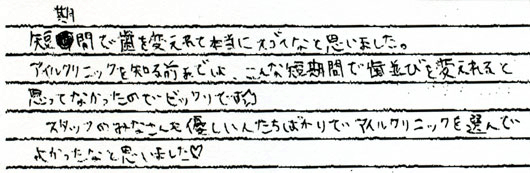 短期間で歯を変えれて本当にスゴイなと思いました。
アイルクリニックを知る前までは、こんな短期間で歯並びを変えれると
思ってなかったのでビックリです
スタッフのみなさんも優しい人たちばかりでアイルクリニックを選んで
よかったなと思いました♡